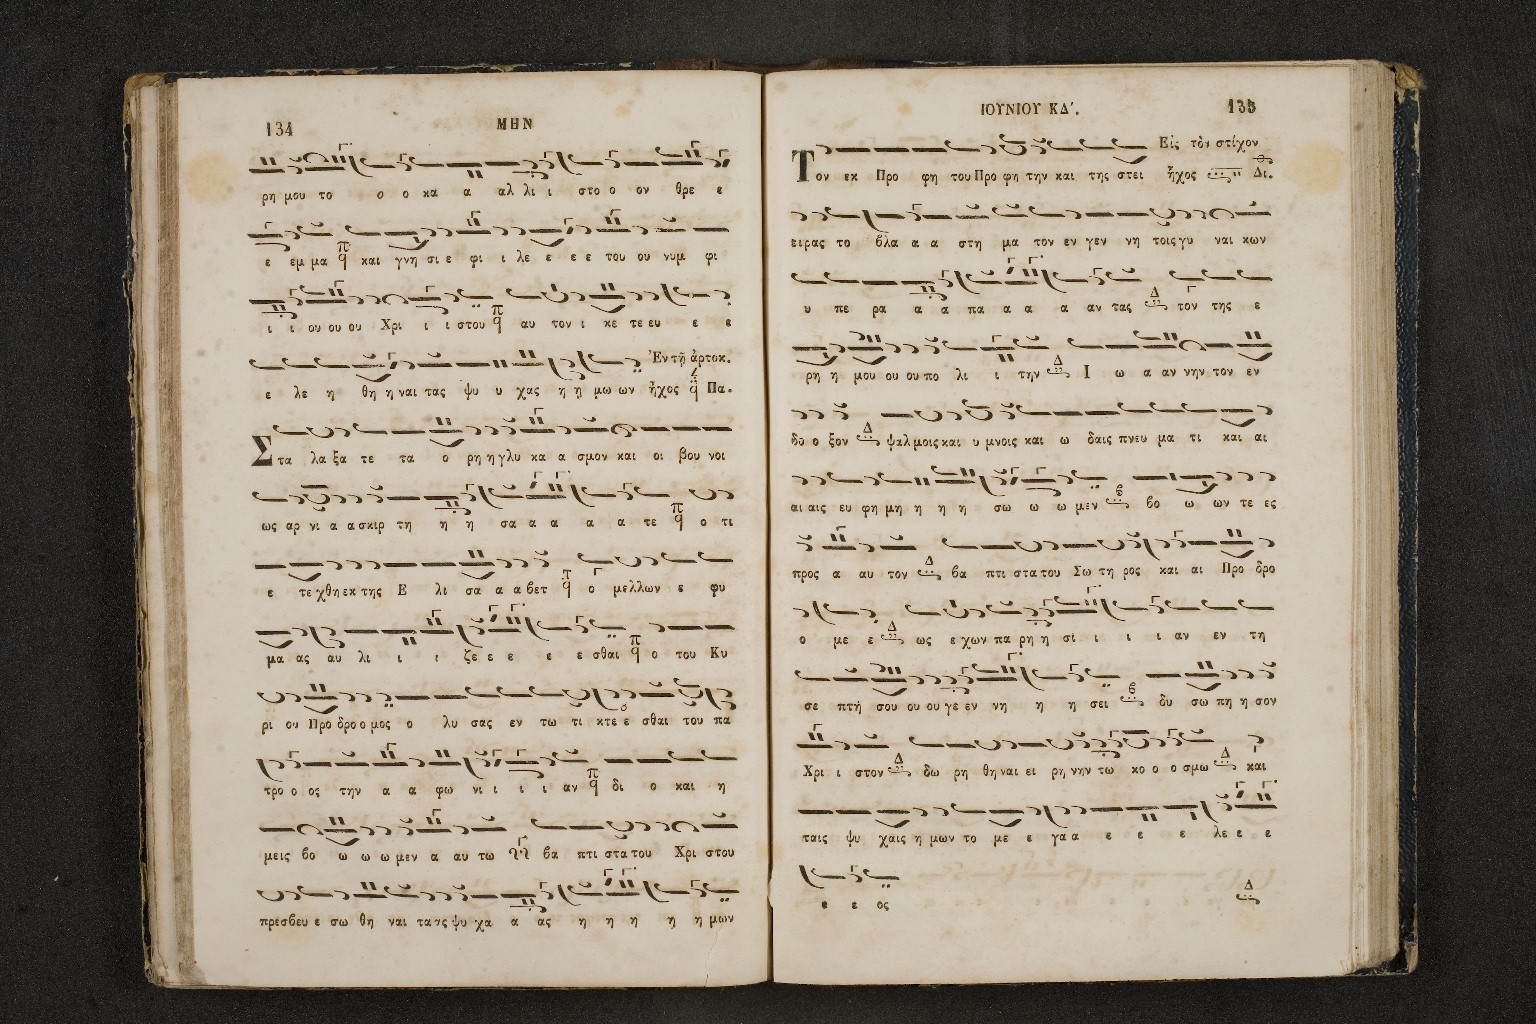 134
ΜΗΝ
ρη μου το ο ο κα α αλ λι ι στο ο ον θρε ε
ε εμ μα και γνη σι ε φι ι λε ε ε ε του ου νυμ φι
ι ι ου ου ου Χρι ι ι στου αυ τον ι κε τε ευ ε ε
Ἐν τῇ ἀρτοκ.
ε λε η θη η ναι τας ψυ υ χας η η μω ων ἦχος Πα.
Στα λα ξα τε τα ο ρη η γλυ κα α σμον και οι βου νοι
ως αρ νι α α σκιρ τη η η σα α α α α τε ο τι
ε τε χθη εκ της Ε λι σα α α βετ ο μελλων ε φυ
μα ας αυ λι ι ι ζε ε ε ε ε σθαι ο του Κυ
ρι ου Προ δρο ο μος ο λυ σας εν τω τι κτε ε σθαι του πα
τρο ο ος την α α φω νι ι ι ι αν δι ο και η
μεις βο ω ω ω μεν α αυ τω βα πτι στα του Χρι στου
πρεσβευ ε σω θη ναι τα ας ψυ χα α ας η η η η η μων
ΙΟΥΝΙΟΥ ΚΔ΄.
135
Εἰς τὸν στίχον
Τον εκ Προ φη του Προ φη την και της στει ἦχος Δι.
ειρας το βλα α α στη μα τον εν γεν νη τοις γυ ναι κων
υ πε ρα α α πα α α α αν τας τον της ε
ρη η μου ου ου πο λι ι την Ι ω α αν νην τον εν
δο ο ξον ψαλ μοις και υ μνοις και ω δαις πνευ μα τι και αι
αι αις ευ φη μη η η η σω ω ω μεν βο ω ων τε ες
προς α αυ τον βα πτι στα του Σω τη ρος και αι Προ δρο
ο με ε ως ε χων πα ρη η σι ι ι ι αν εν τη
σε πτή σου ου ου γε εν νη η η σει δυ σω πη η σον
Χρι ι στον δω ρη θη ναι ει ρη νην τω κο ο ο σμω και
ταις ψυ χαις η μων το με ε γα α ε ε ε λε ε ε
ε ε ος